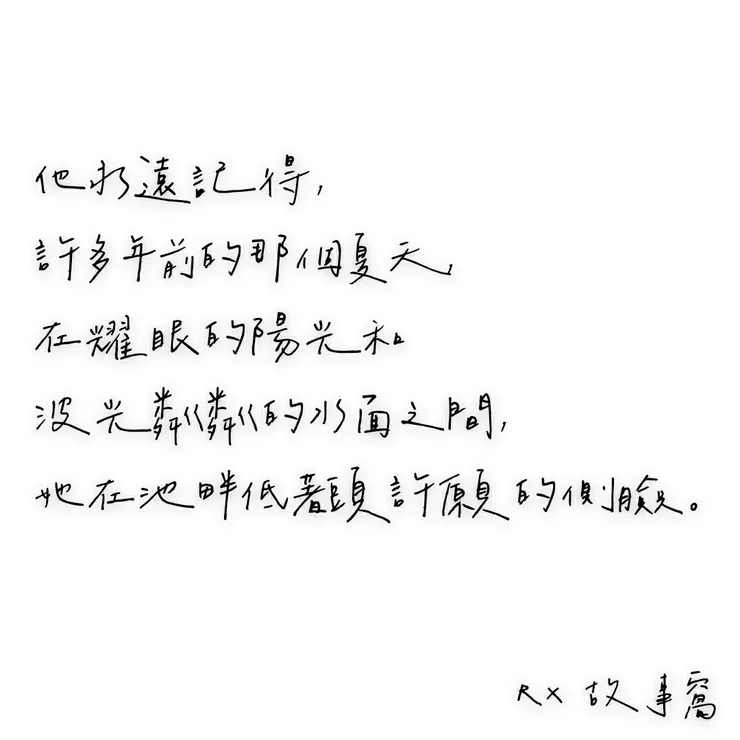 他永遠記得,
許多年前的那個夏天,
在耀眼的陽光和
波光粼粼的水面之間,
她在池畔低著頭許願的側臉。
RX 故事窩